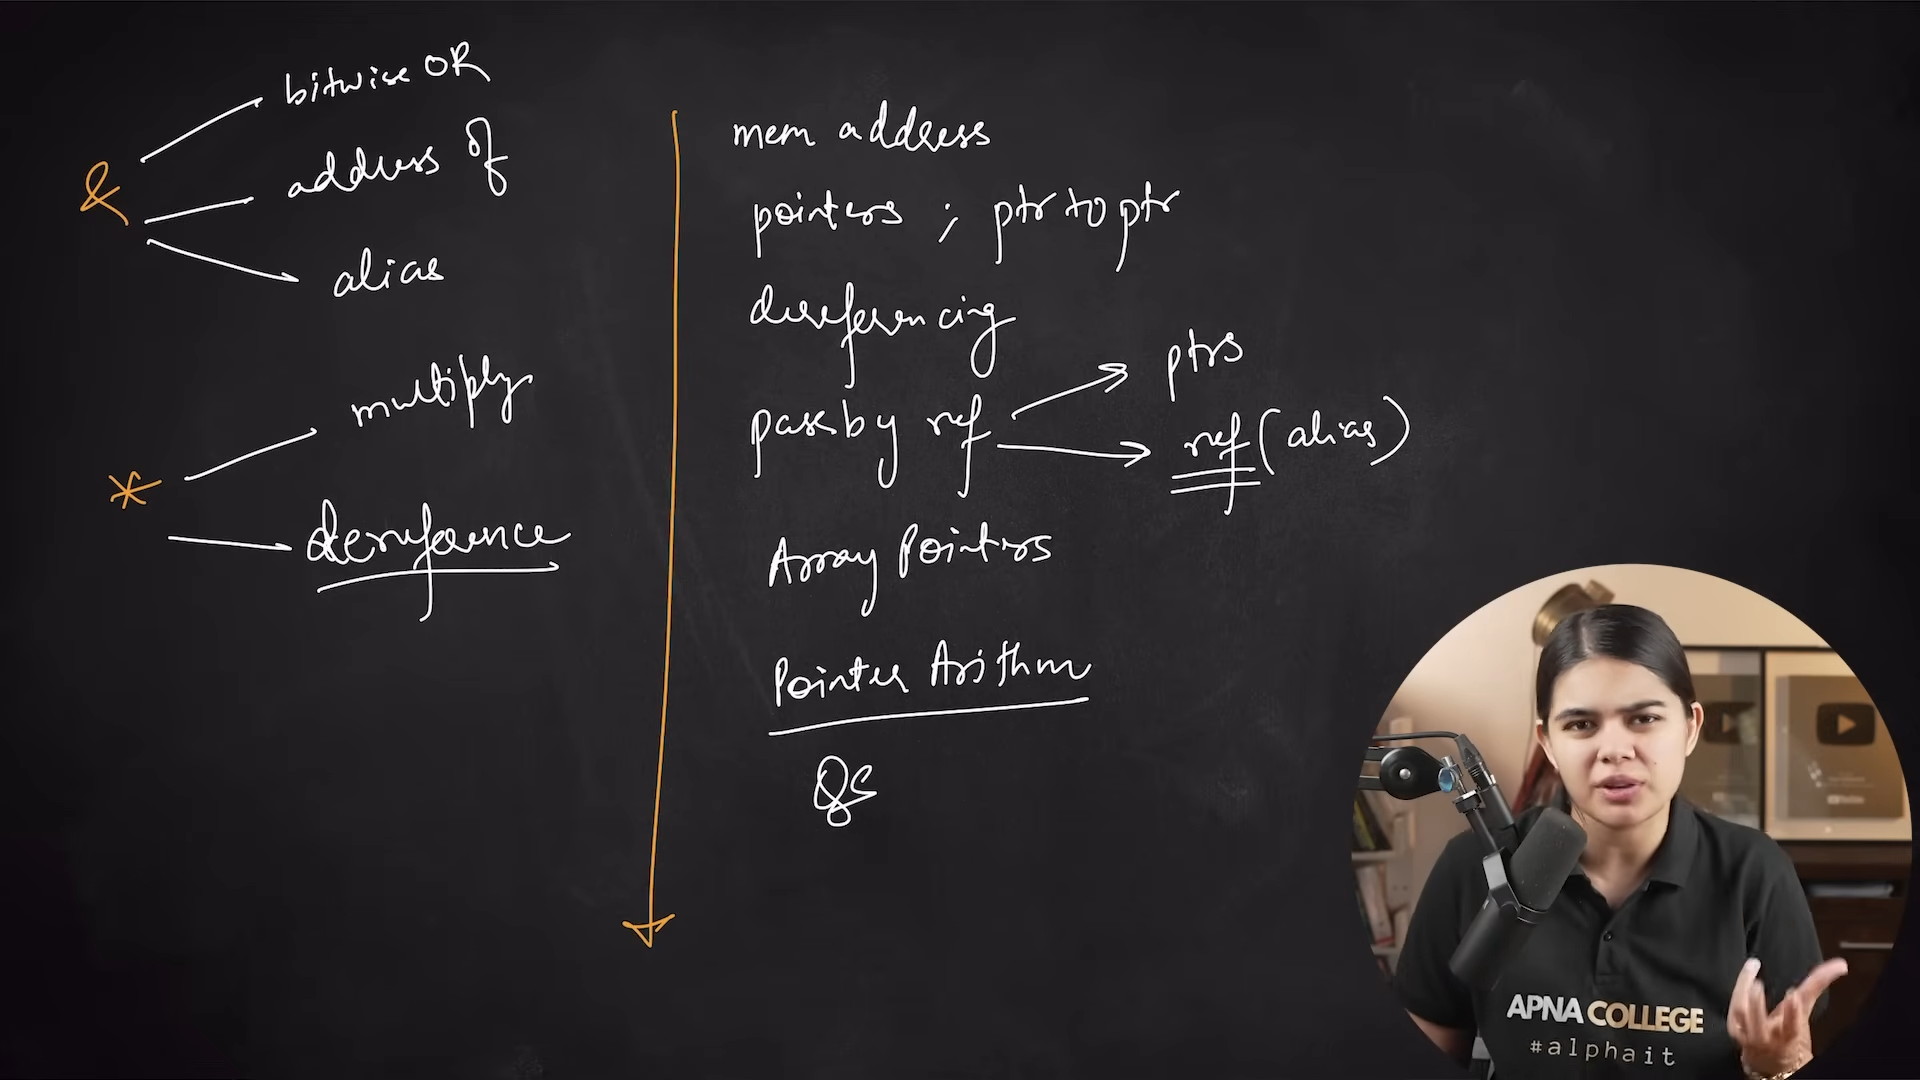 bitwise OR
&
address of
alias
multiply
*
dereference
mem address
pointers ; ptr to ptr
dereferencing
pass by ref
ptrs
ref (alias)
Array Pointers
Pointer Arithm
Qs
APNA COLLEGE
#alphait